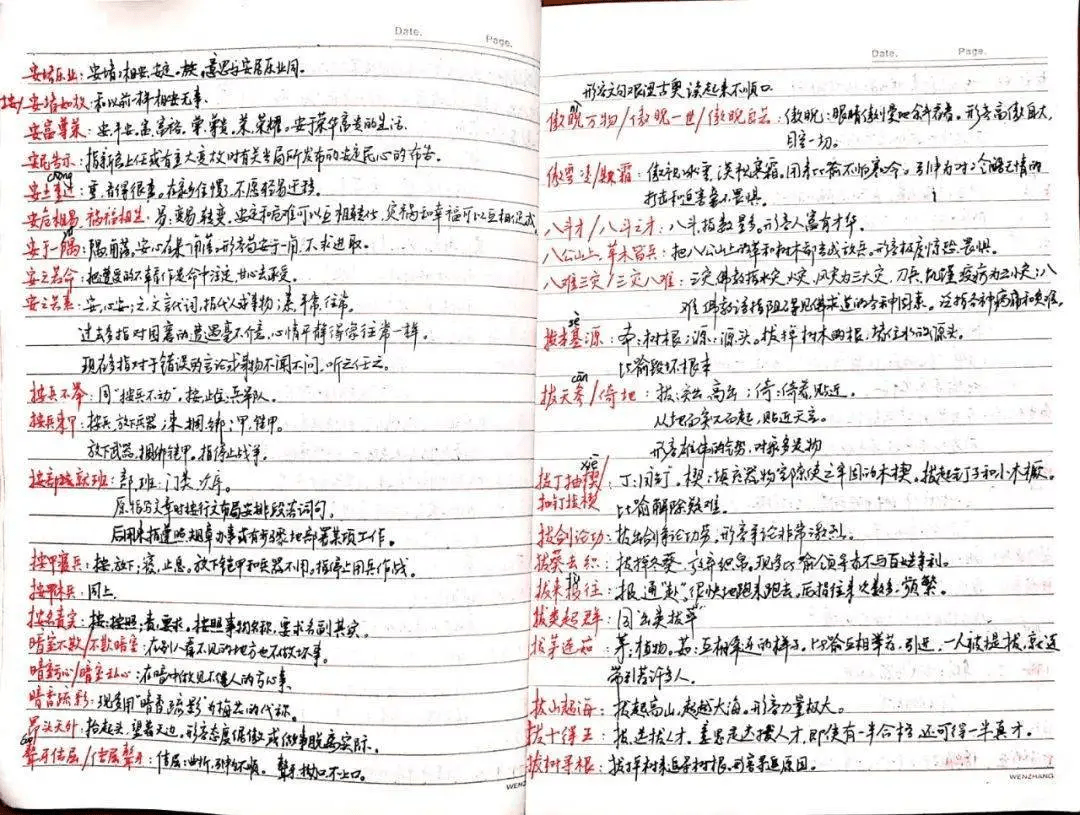 Date.
Page.
安堵乐业：安堵：相安、安定。意思与安居乐业同。
按/安堵如故：和以前一样相安无事。
安富尊荣：安平安，富富裕，尊尊贵，荣荣耀。安于荣华富贵的生活。
安民告示：指新官上任或有重大变故时有关当局所发布的安定民心的布告。
zhòng
安土重迁：重，看得很重。在家乡住惯，不愿轻易迁移。
安危相易 祸福相生：易，变易，转变。安定和危难可以互相转化，灾祸和幸福可以互相促成
yú
安于一隅：隅，角落。安心在某一角落。形容苟安于一角，不求进取。
安之若命：把遭受的不幸看作是命中注定，甘心去承受。
安之若素：安，心安；之，文言代词，指代人或事物；素，平常，往常。
过去多指对困窘的遭遇毫不介意，心情平静得像往常一样。
现在多指对于错误的言论或事物不闻不问，听之任之。
按兵不举：同“按兵不动”，按，止住；兵，军队。
按兵束甲：按兵，放下兵器；束，捆绑；甲，铠甲。
放下武器，捆绑铠甲。指停止战争。
按部就班：部、班：门类，次序。
原指写文章时按行文布局安排段落词句。
后用来指遵照规章办事或有步骤地部署某项工作。
按甲寝兵：按，放下，寝，止息。放下铠甲和兵器不用。指停止用兵作战。
按甲休兵：同上
按名责实：按：按照；责：要求。按照事物名称，要求名副其实。
暗室不欺/不欺暗室：在别人看不见的地方也不做坏事。
暗室亏心/暗室亏心：在暗中做见不得人的亏心事。
暗香疏影：现多用“暗香疏影”为梅花的代称。
昂头天外：抬起头，望着天边。形容态度倨傲或做事脱离实际。
聱牙佶屈/佶屈聱牙：佶屈：曲折，引申为不顺。聱牙：拗口不上口。
Date.
Page.
形容文句艰涩古奥，读起来不顺口
傲睨万物/傲睨一世/傲睨自若：傲睨：眼睛傲慢地斜着看。形容高傲自大，
目空一切。
傲雪凌/欺霜：傲视冰雪，漠视寒霜。用来比喻不怕寒冷。引申为对冷酷无情的
打击和迫害毫不畏惧。
八斗才/八斗之才：八斗，指数量多。形容人富有才华。
八公山上，草木皆兵：把八公山上的草和树木都当成敌兵。形容极度惊恐、畏惧。
八难三灾/三灾八难：三灾，佛教指水灾、火灾、风灾为三大灾，刀兵、饥馑、疫病为三小灾；八
难，佛教语指阻碍见佛求道的各种因素。泛指各种病痛和灾难。
拔本塞源：本，树根；源：源头。拔掉树木的根，堵住水的源头。
比喻毁坏根本
cān
拔天参/倚地：拔，突出，高出；倚，倚着，贴近。
从地面突兀而起，贴近天空。
形容雄伟的气势，对象多是物
xiē
拔丁抽楔/：丁，同“钉”。楔：填充器物空隙使之牢固的木楔。拔起钉子和小木橛。
扣钉拔楔 比喻解除疑难。
拔剑论功：拔出剑争论功劳，形容争论非常激烈。
拔葵去织：拔掉冬葵，现多比喻领导者不与百姓争利。
拔来报往：报，通“赴”。很快地跑来跑去，后指往来次数多，频繁。
拔类超群：同“出类拔萃”
拔茅连茹：茅，植物。茹：互相牵连的样子。比喻互相举荐、引进，一人被提拔，就连
带引着许多人。
拔山超海：拔起高山，超越大海。形容力量极大。
拔十得五：拔，选拔人才。意思是选拔人才，即使有一半合格，还可得一半真才。
拔树寻根：拔掉树来追寻树根，形容寻追原因。
WENZHANG